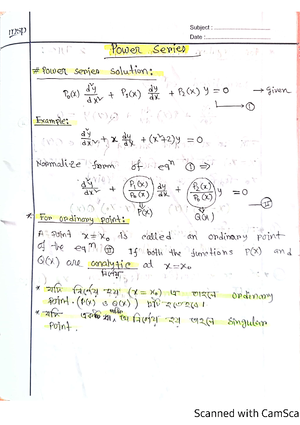 Subject :
Date :
Power series
# Power series solution:
P₀(x) d²y/dx² + P₁(x) dy/dx + P₂(x) y = 0 → given
→ ①
Example:
d²y/dx² + x dy/dx + (x²+2)y = 0
Normalize form of eqⁿ ① ⇒
d²y/dx² + (P₁(x)/P₀(x)) dy/dx + (P₂(x)/P₀(x)) y = 0
P(x) Q(x) → ②
* For ordinary point:
A point x = x₀ is called an ordinary point
of the eqⁿ ② If both the functions P(x) and
Q(x) are analytic at x = x₀
নির্ণেয়
* যদি নির্ণেয় হয় (x = x₀) তে তাহলে ordinary
point. (P(x) ও Q(x))
* যদি নির্ণেয় হয় তাহলে singular
point.
Scanned with CamSca